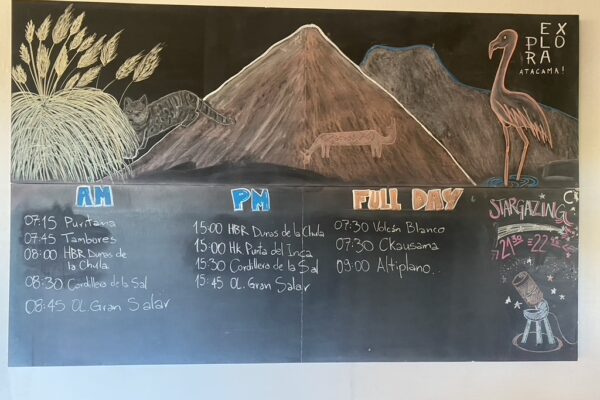 EX
PLO
RA
ATACAMA!
AM
07:15 Puritama
07:45 Tambores
08:00 HBR Dunas de
la Chula.
08:30 Cordillera de la Sal
08:45 OL. Gran Salar
PM
15:00 HBR Dunas de la Chula
15:00 Hk Punta del Inca
15:30 Cordillera de la Sal
15:45 OL. Gran Salar
FULL DAY
07:30 Volcán Blanco
07:30 Ckausama
09:00 Altiplano.
STARGAZING
21:30
22: